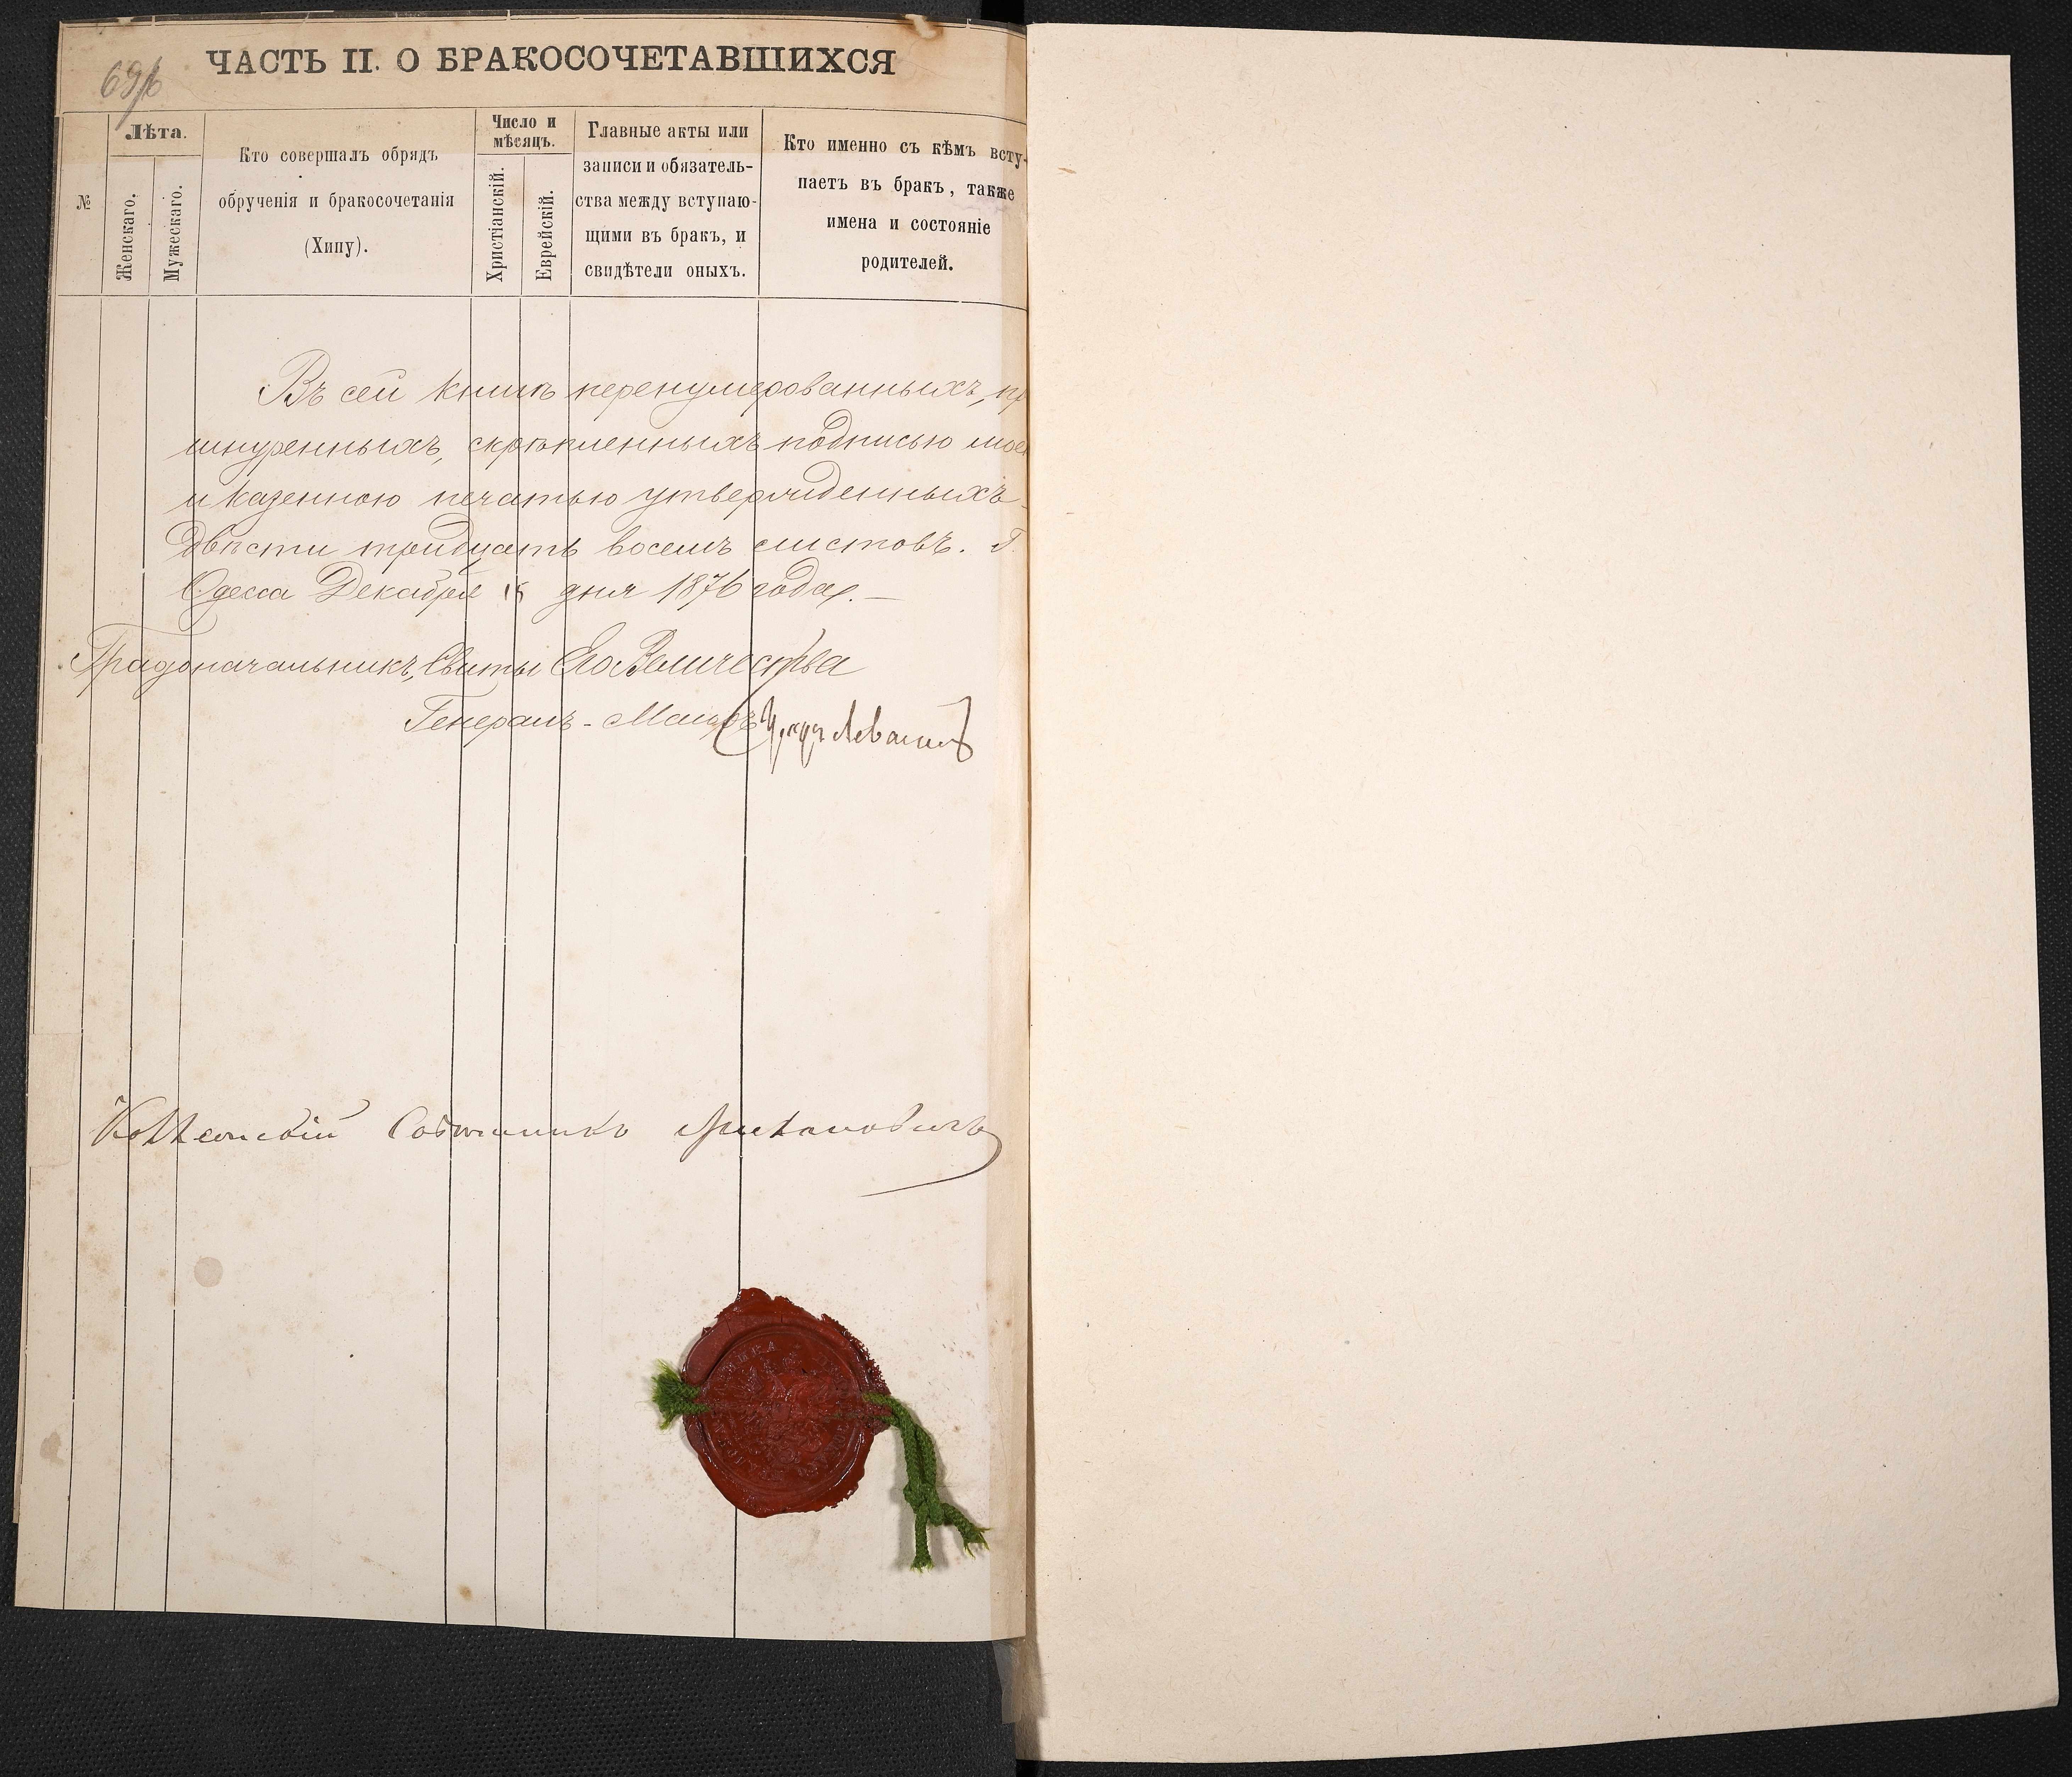 ЧАСТЬ II. О БРАКОСОЧЕТАВШИХСЯ
№
Лѣта.
Женскаго.
Мужескаго.
Кто совершалъ обрядъ
обрученія и бракосочетанія
(Хипу).
Число и
мѣсяцъ.
Христіанскій.
Еврейскій.
Главные акты или
записи и обязатель-
ства между вступаю-
щими въ бракъ, и
свидѣтели оныхъ.
Кто именно съ кѣмъ всту-
паетъ въ бракъ, также
имена и состояніе
родителей.
Въ сей книгѣ перенумерованныхъ, пр
шнуренныхъ, скрѣпленныхъ подписью мое
и казенною печатью утвержденныхъ
двѣсти тридцать восемь листовъ. Г.
Одесса Декабря дня 1876 года.
Градоначальникъ, Свиты Его Величества
Генералъ-Маіоръ Левашов
Совѣтникъ